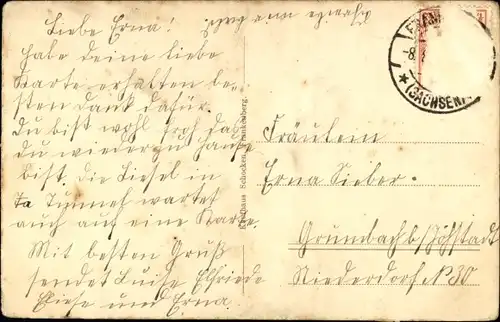 Liebe Erna!
habe deine liebe
Karte erhalten be-
sten Dank dafür.
Du bist wohl froh daß
du wieder zu hause
bist die Liesel in
Tunnel wartet
auch auf eine Karte.
Mit besten Gruß
sendet Luise Elfriede
Liese und Erna.
bald.
Kaufhaus Schocken, Frankenberg.
(SACHSEN)
Fräulein
Erna Sieber.
Grumbach b/Jöhstadt
Niederdorf N 30